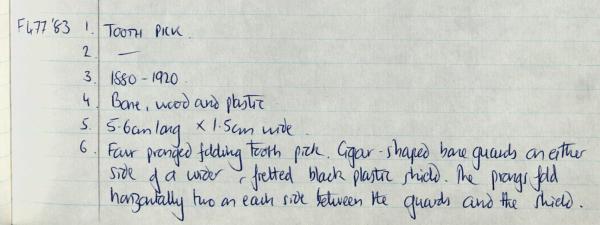 F477'83 1. TOOTH PICK.
2 —
3. 1880-1920
4. Bone, wood and plastic
5. 5.6cm long x 1.5cm wide.
6. Four pronged folding tooth pick. Cigar-shaped bone guards on either
side of a wider, fretted black plastic shield. The prongs fold
horizontally two on each side between the guards and the shield.